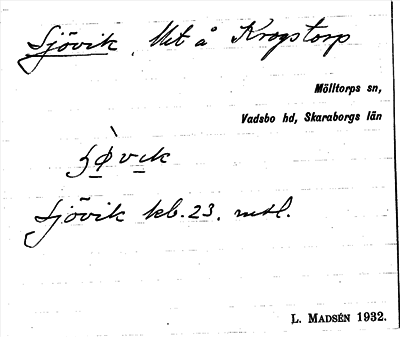 Sjövik, Ut å Krogstorp
Mölltorps sn,
Vadsbo hd, Skaraborgs län
Sjövik kb. 23. mtl.
L. MADSÉN 1932.